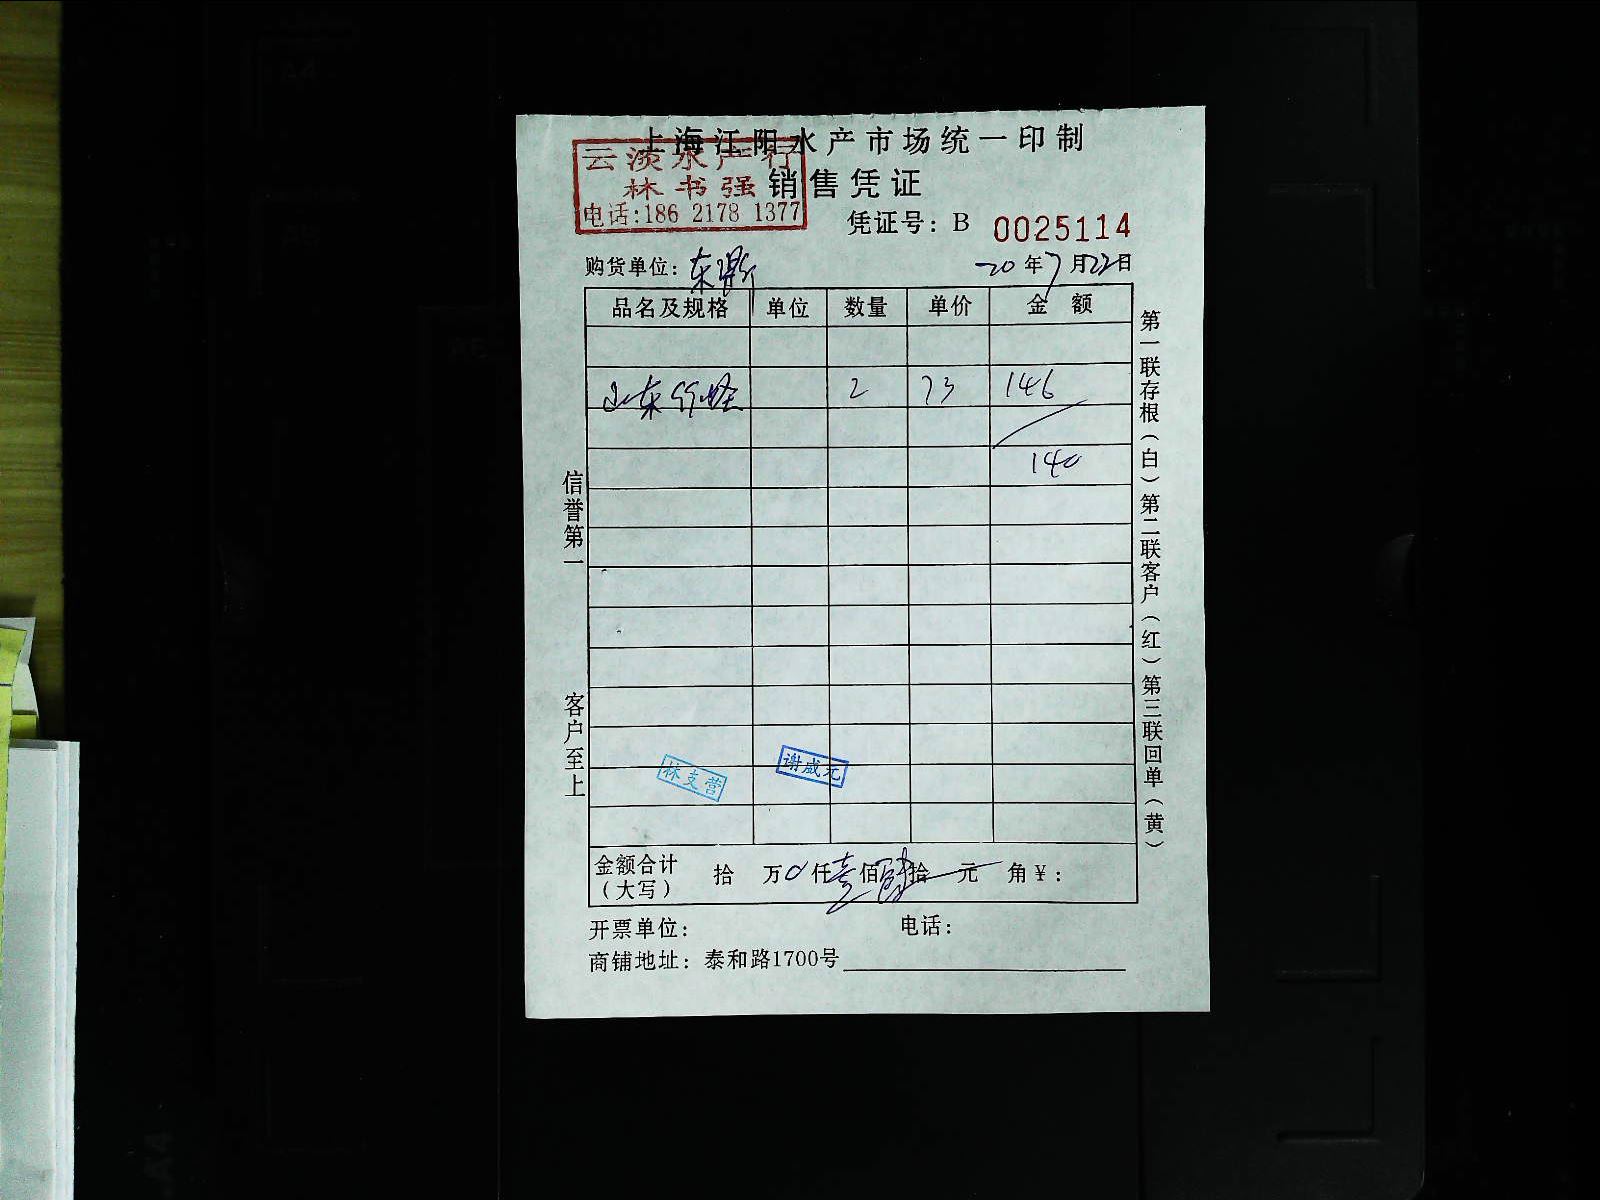 上海江阳水产市场统一印制
云淡水产行
林书强
电话:186 2178 1377
销售凭证
凭证号: B 0025114
购货单位: 东
20年7月22日
品名及规格 单位 数量 单价 金额
山东 2 73 146
140
信誉第一
客户至上
第一联存根(白)第二联客户(红)第三联回单(黄)
林支营
谢咸元
金额合计 拾 万0仟壹佰肆拾 元 角¥:
(大写)
开票单位: 电话:
商铺地址: 泰和路1700号